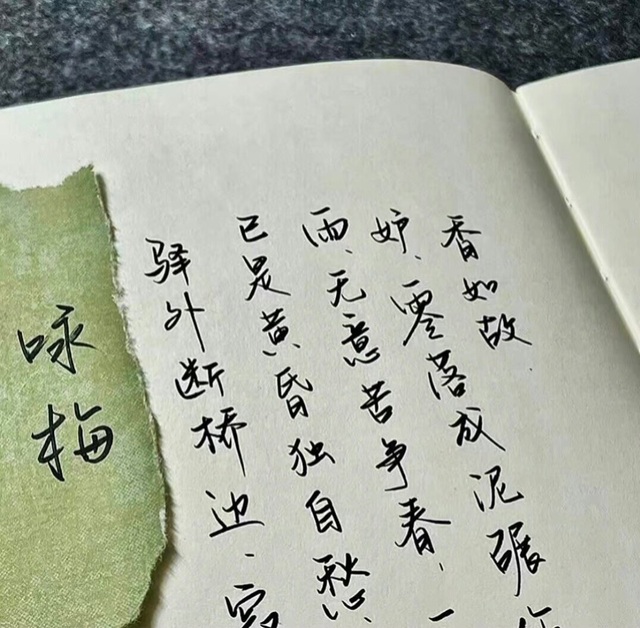 咏梅
驿外断桥边、寂
已是黄昏独自愁、
雨、无意苦争春,一
妒、零落成泥碾作
香如故.